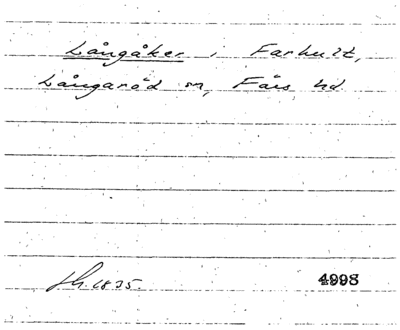 Långåker i Farhult,
Långaröd sn, Färs hd
1835.
4998